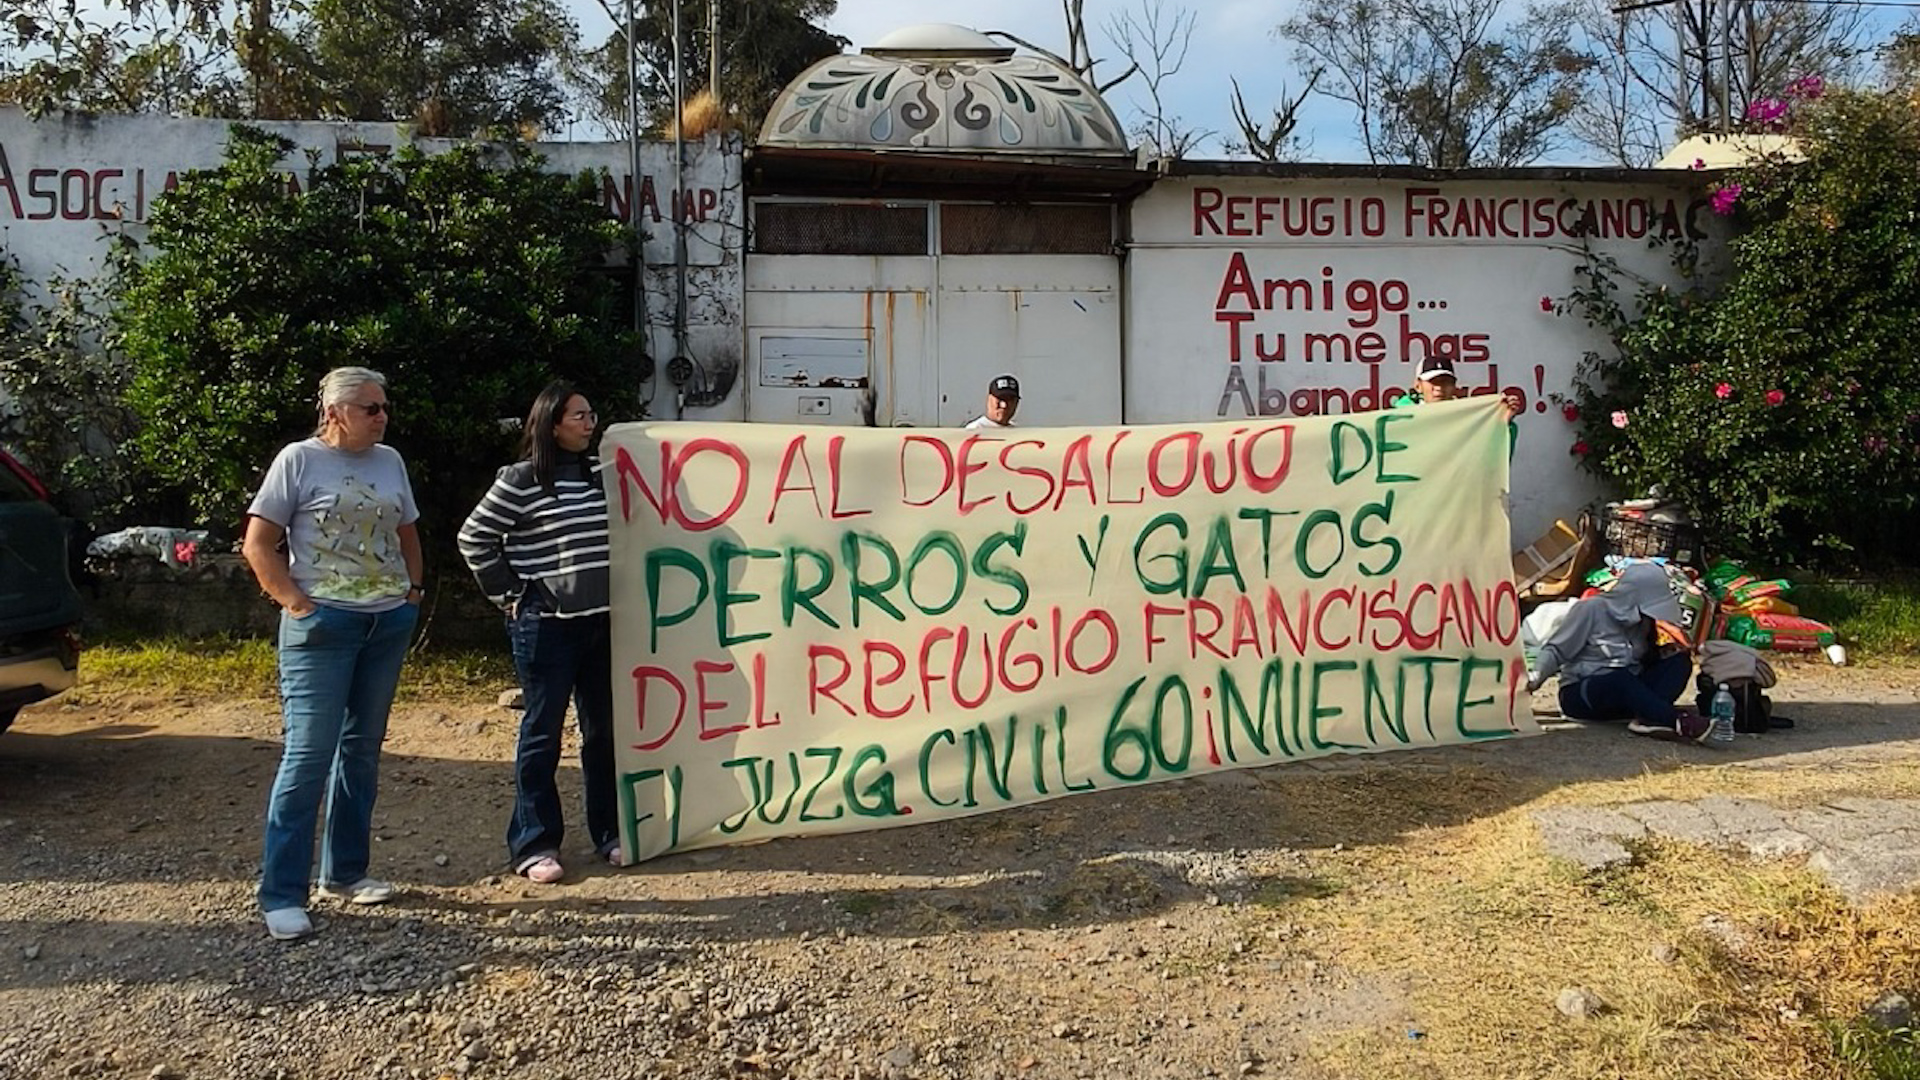 IAP
REFUGIO FRANCISCANO A C
Amigo...
Tu me has
NO AL DESALOJO DE
PERROS Y GATOS
DEL REFUGIO FRANCISCANO
El JUZG. CIVIL 60 ¡MIENTE!